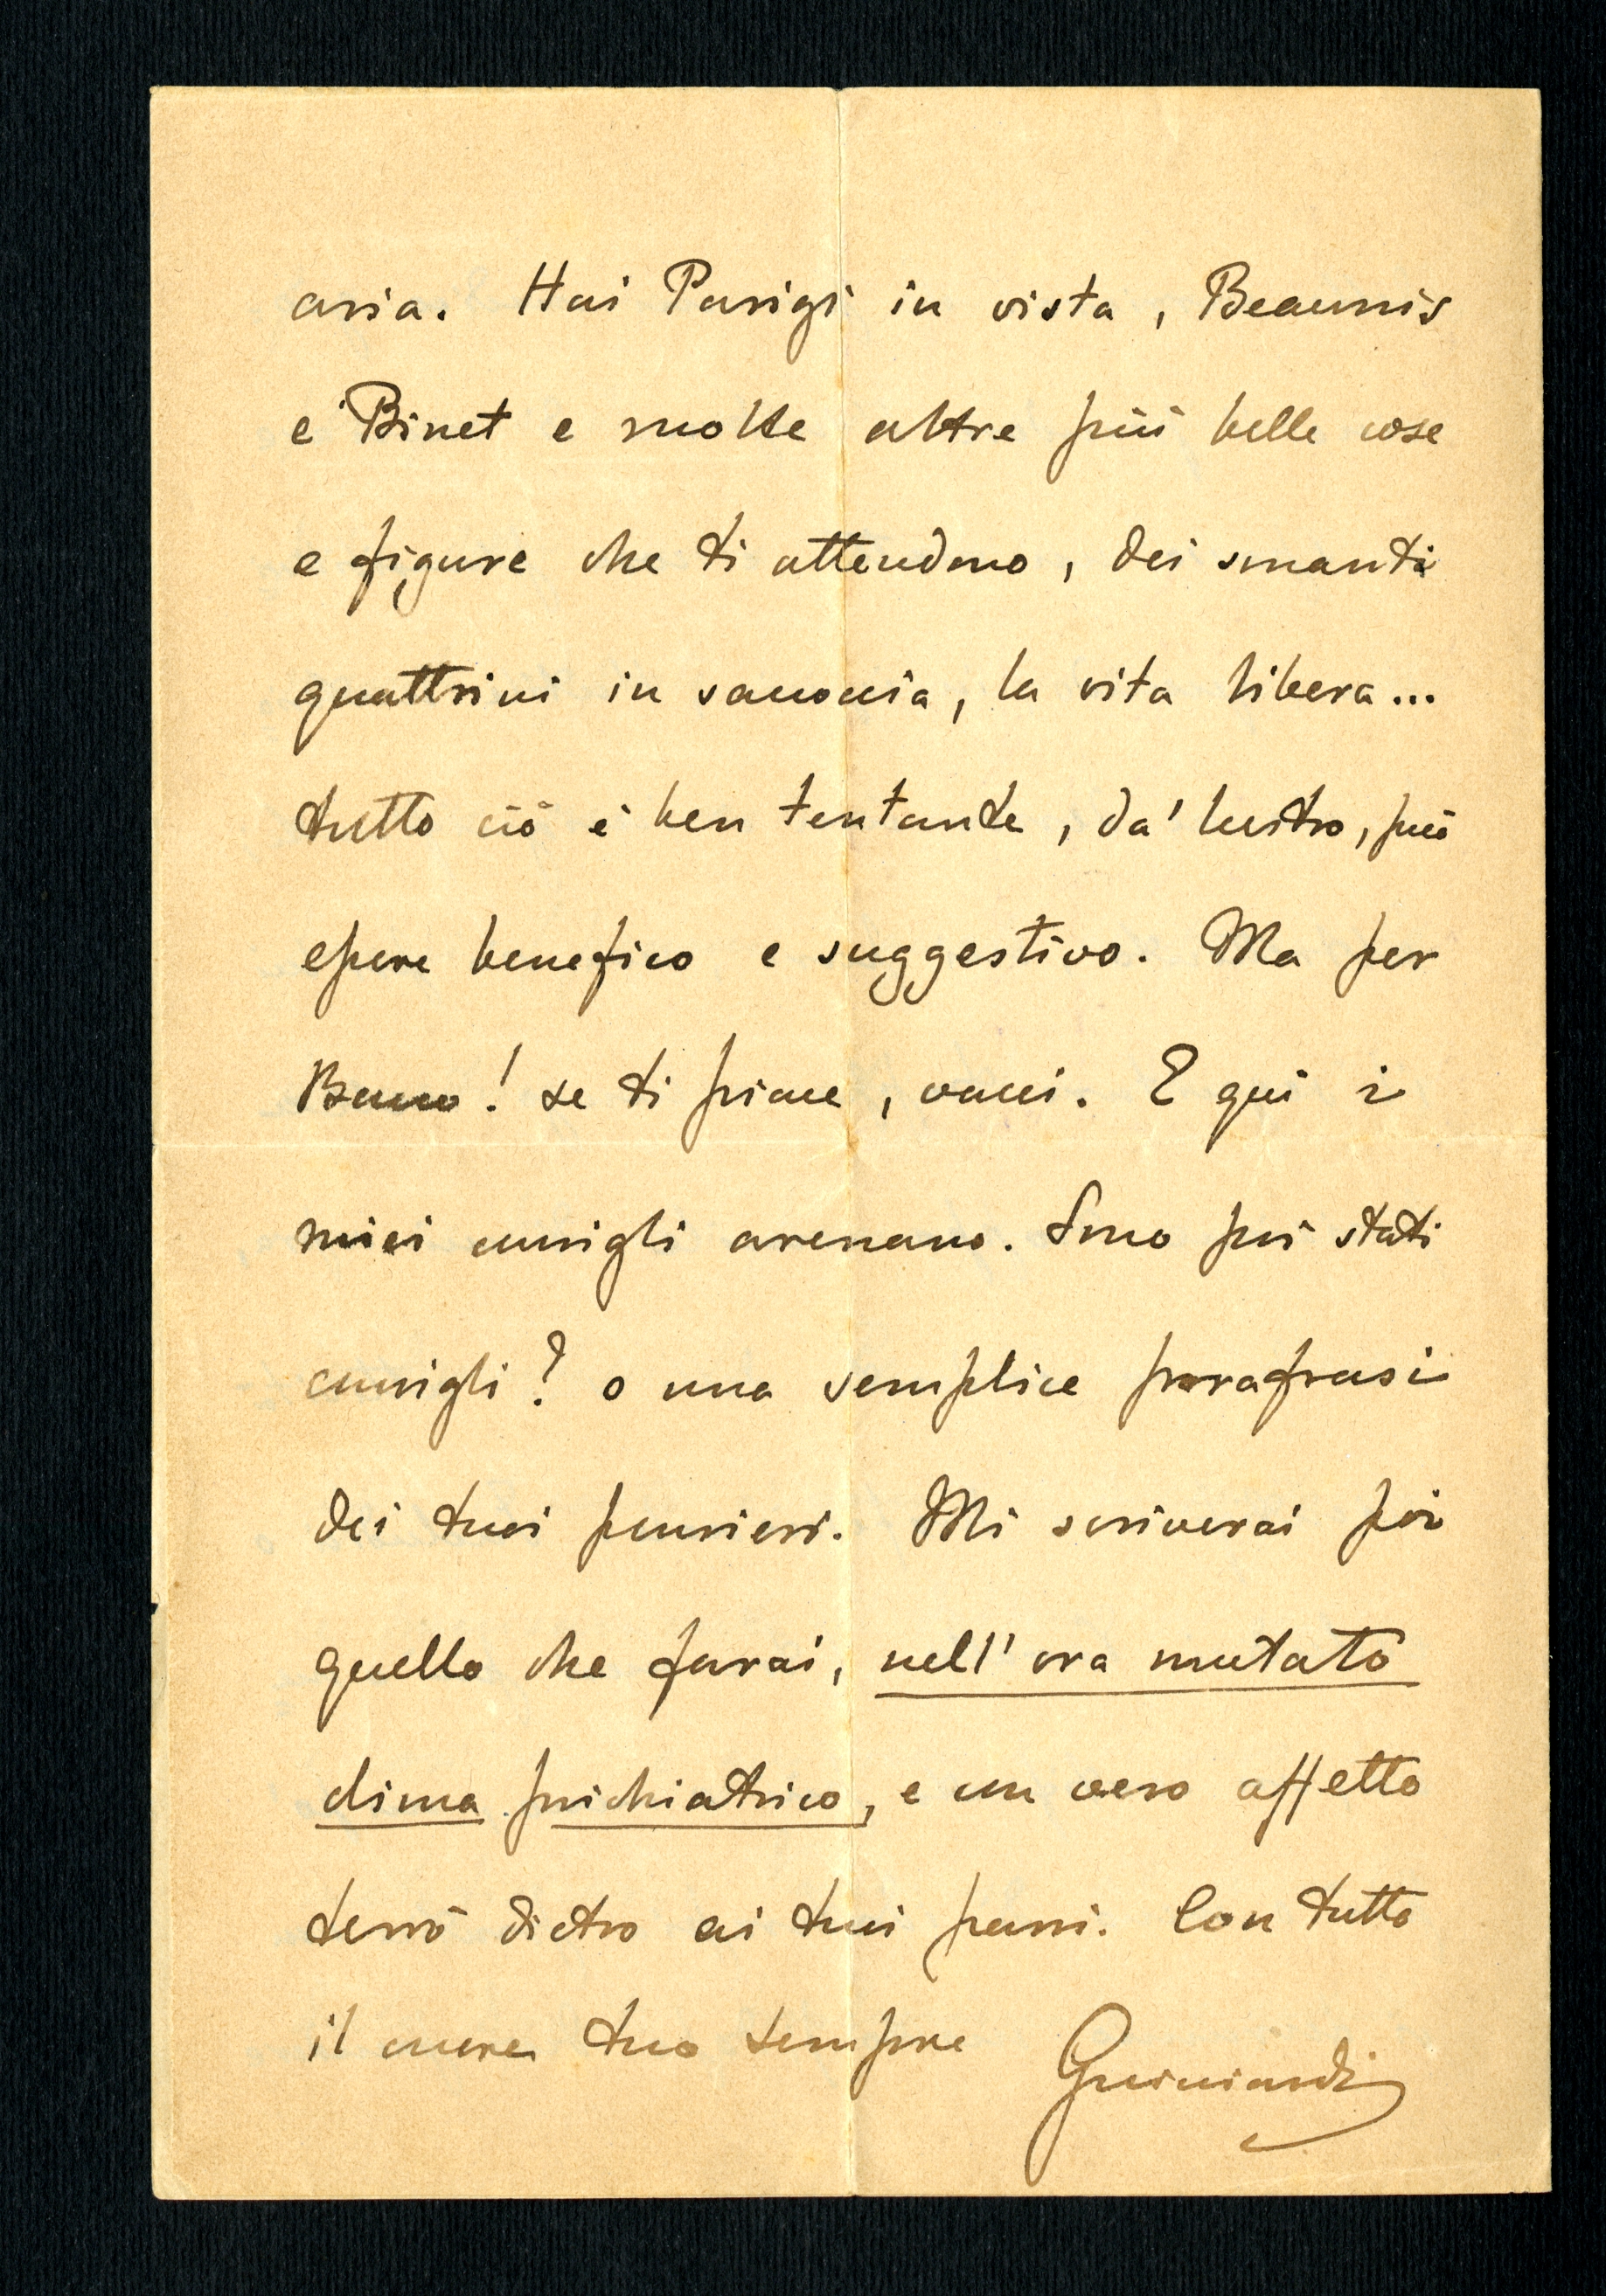 aria. Hai Parigi in vista, Beaunis
e Binet e molte altre più belle cose
e figure che ti attendono, dei smanti
quattrini in saccoccia, la vita libera...
tutto ciò è ben tentante, da' lustro, può
essere benefico e suggestivo. Ma per
Bacco! se ti piace, vacci. E qui i
miei consigli arenano. Sono poi stati
consigli? o una semplice parafrasi
dei tuoi pensieri. Mi scriverai poi
quello che farai, nell'ora mutato
clima psichiatrico, e con vero affetto
terrò dietro ai tuoi passi. Con tutto
il cuore tuo sempre
Guicciardi